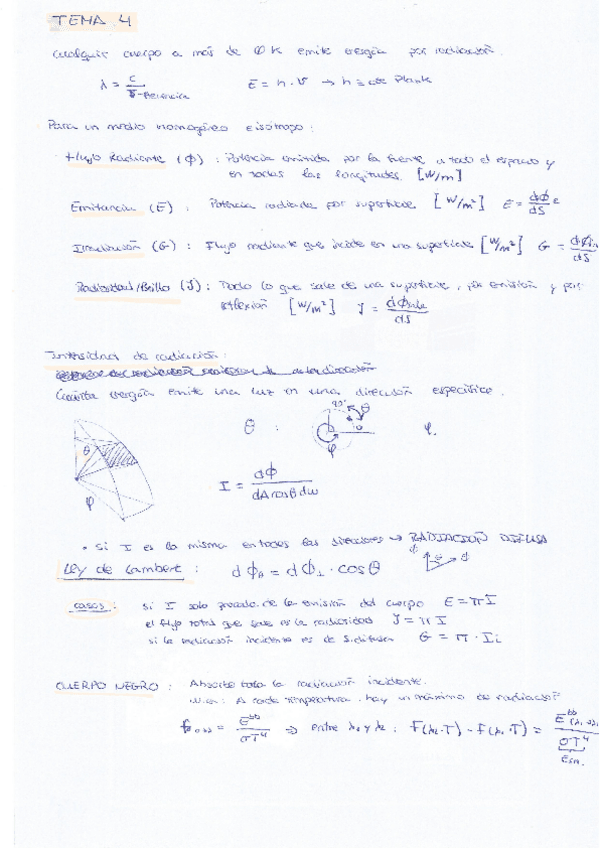 TEMA 4
cualquier cuerpo a más de 0 K emite energía por radiación.
λ = c / ν → frecuencia    E = h · ν → h ≡ cte Plank
Para un medio homogéneo e isótropo:
Flujo Radiante (ϕ): Potencia emitida por la fuente a todo el espacio y
en todas las longitudes [W/m]
Emitancia (E): Potencia radiada por superficie [W/m²] E = dϕe / dS
Irradiación (G): Flujo radiante que incide en una superficie [W/m²] G = dϕin / dS
Radiosidad/Brillo (J): Todo lo que sale de una superficie, por emisión y por
reflexión [W/m²] J = dϕsale / dS
Intensidad de radiación:
Cuánta energía emite una luz en una dirección específica.
90° θ
θ θ : φ.
φ φ
I = dϕ / dA cosθ dω
• Si I es la misma en todas las direcciones → RADIACIÓN DIFUSA
Ley de Lambert: dϕθ = dϕ⊥ · cosθ
casos: si I solo procede de la emisión del cuerpo E = π I
el flujo total que sale es la radiosidad J = π I
si la radiación incidente es difusa G = π · Ii
CUERPO NEGRO: Absorbe toda la radiación incidente.
A cada temperatura hay un máximo de radiación
= E^bb / σT⁴ ⇒ entre λ₂ y λ₁: F(λ₂·T) - F(λ₁·T) = E^bb / σT⁴